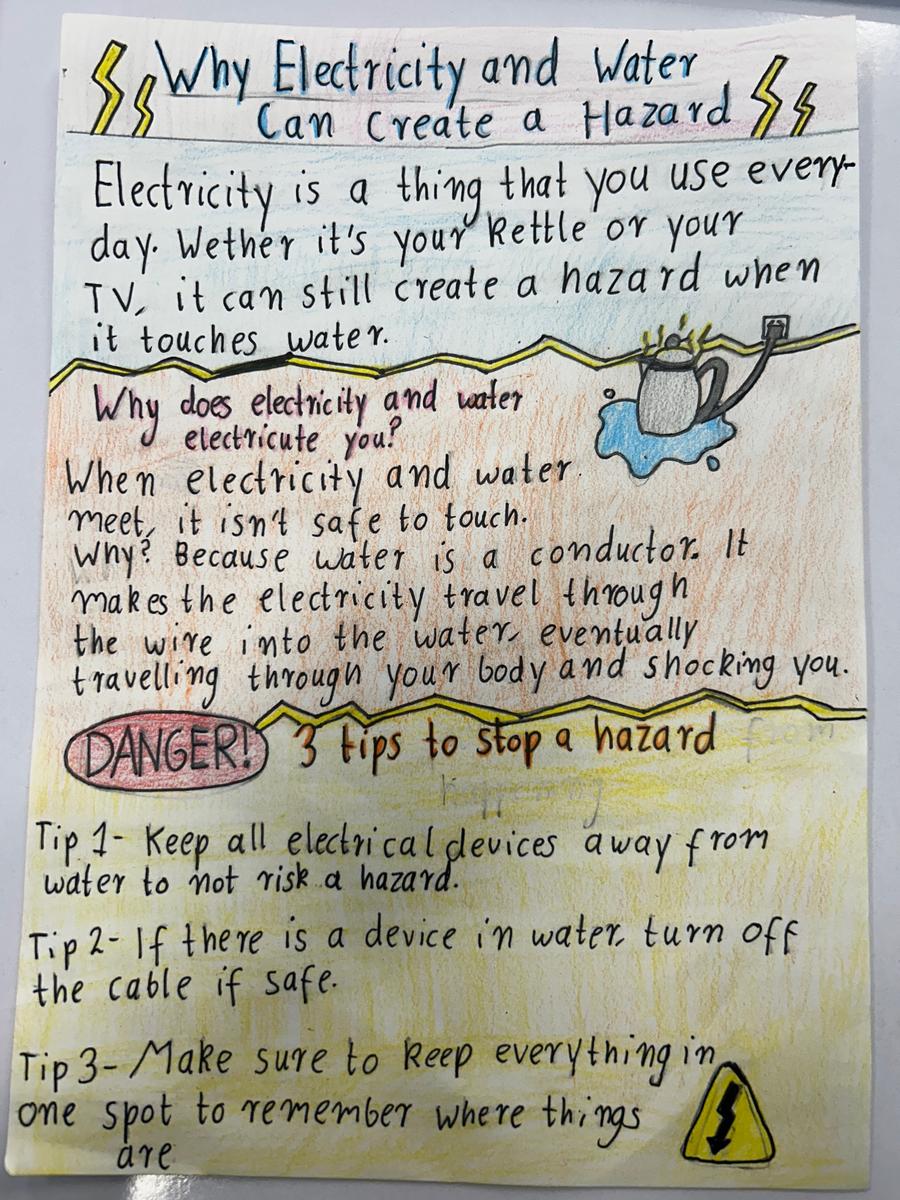 Why Electricity and Water
Can Create a Hazard
Electricity is a thing that you use every-
day. Wether it's your kettle or your
TV, it can still create a hazard when
it touches water.
Why does electricity and water
electricute you?
When electricity and water
meet, it isn't safe to touch.
Why? Because water is a conductor. It
makes the electricity travel through
the wire into the water, eventually
travelling through your body and shocking you.
DANGER! 3 tips to stop a hazard from
happening
Tip 1- Keep all electrical devices away from
water to not risk a hazard.
Tip 2- If there is a device in water, turn off
the cable if safe.
Tip 3- Make sure to keep everything in
one spot to remember where things
are